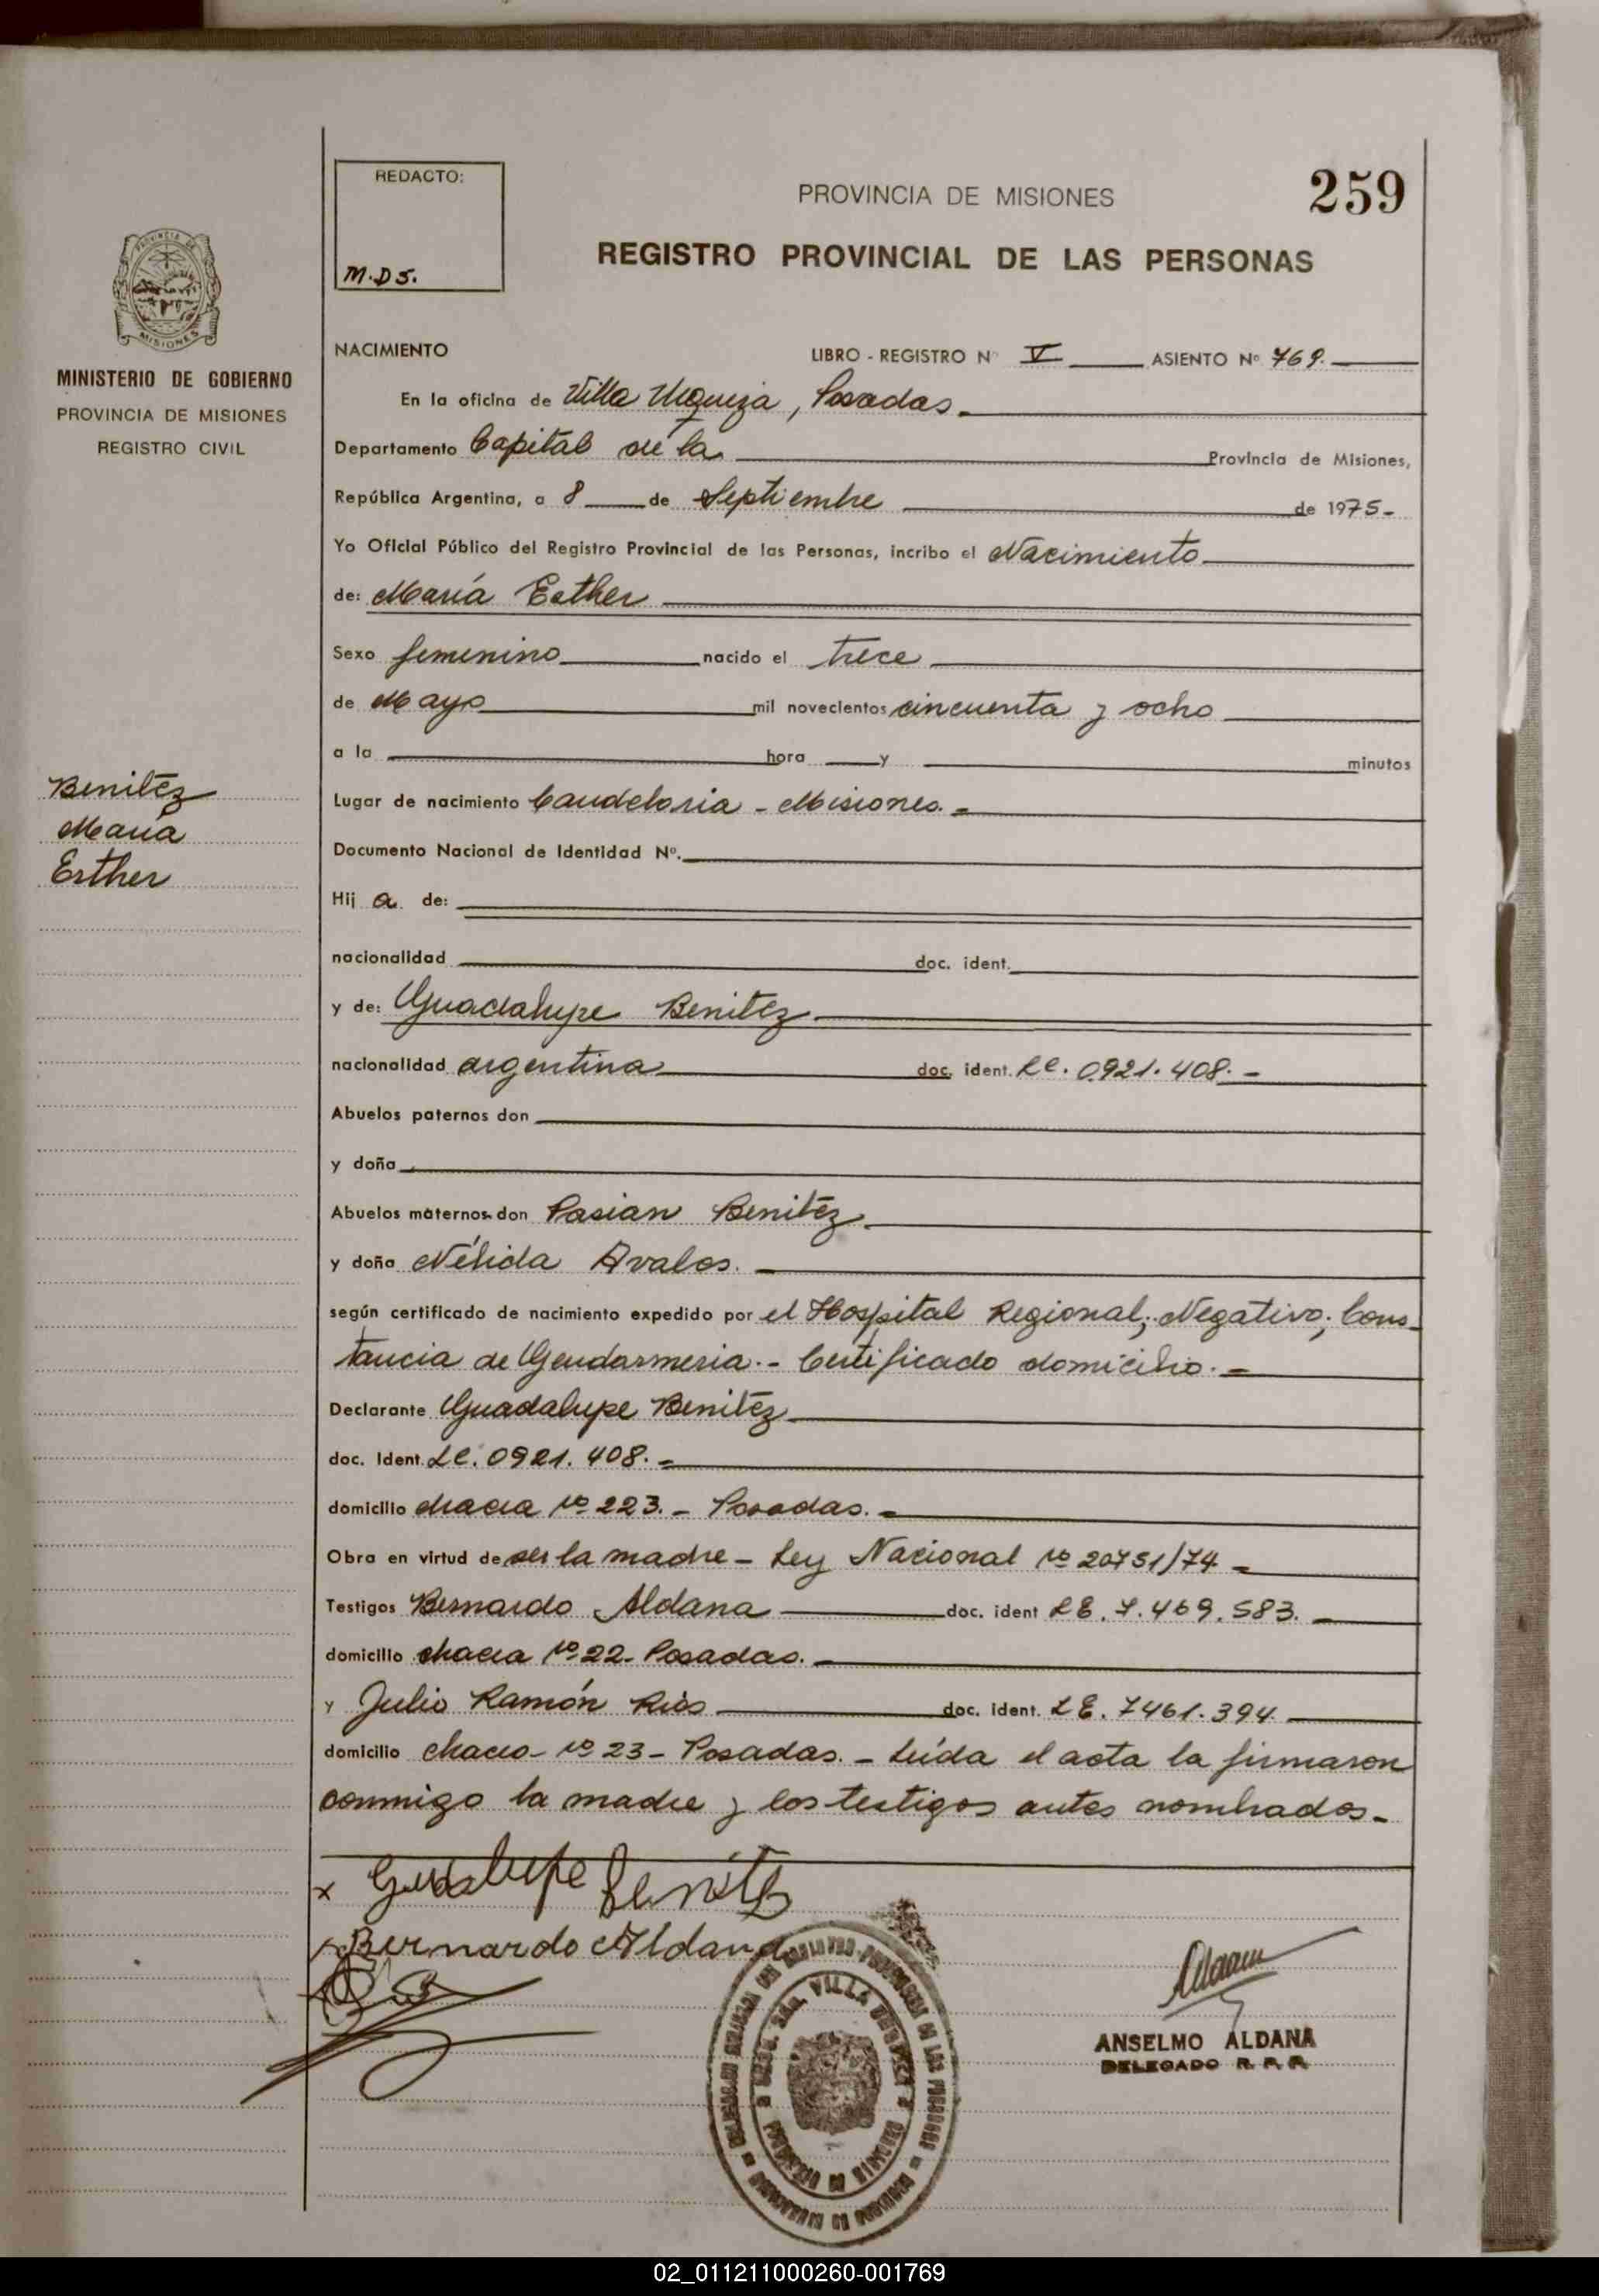 REDACTO:
M.D.S.
PROVINCIA DE MISIONES
259
REGISTRO PROVINCIAL DE LAS PERSONAS
MISIONES
MINISTERIO DE GOBIERNO
PROVINCIA DE MISIONES
REGISTRO CIVIL
Benitez
María
Esther
NACIMIENTO LIBRO - REGISTRO Nº V ASIENTO Nº 769.
En la oficina de Villa Urquiza, Posadas.
Departamento Capital de la Provincia de Misiones,
República Argentina, a 8 de Septiembre de 1975-
Yo Oficial Público del Registro Provincial de las Personas, incribo el Nacimiento
de: María Esther
Sexo femenino nacido el trece
de Mayo mil novecientos cincuenta y ocho
a la hora y minutos
Lugar de nacimiento Candelaria - Misiones. -
Documento Nacional de Identidad Nº.
Hij a de:
nacionalidad doc. ident.
y de: Guadalupe Benitez
nacionalidad argentina doc. ident. LC. 0921.408. -
Abuelos paternos don
y doña
Abuelos maternos don Pasian Benitez
y doña Nélida Avalos. -
según certificado de nacimiento expedido por el Hospital Regional; Negativo; Cons-
tancia de Gendarmeria. - Certificado domicilio. -
Declarante Guadalupe Benitez
doc. Ident. LC. 0921.408. -
domicilio chacra Nº 223. - Posadas. -
Obra en virtud de ser la madre - Ley Nacional Nº 20751/74 -
Testigos Bernardo Aldana doc. ident LE. 7.469.583. -
domicilio chacra Nº 22- Posadas. -
y Julio Ramón Rios doc. ident. LE. 7461.394
domicilio chacra- Nº 23 - Posadas. - Leída el acta la firmaron
conmigo la madre y los testigos antes nombrados. -
x Guadalupe Benitez
Bernardo Aldana
VILLA URQUIZA
ANSELMO ALDANA
DELEGADO R. P. P.
02_011211000260-001769